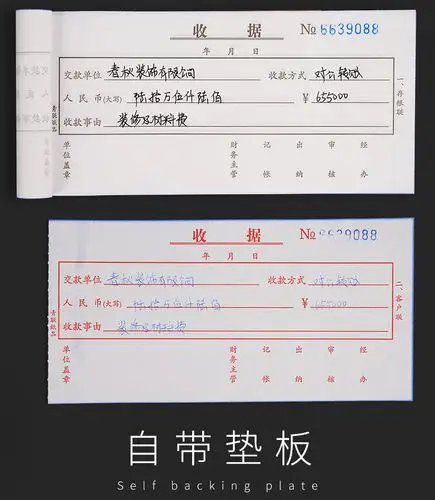 收 据 № 6639088
年 月 日
交款单位 春秋装饰有限公司 收款方式 对公转账
人 民 币(大写) 陆拾万伍仟陆佰 ¥ 655000
收款事由 装饰及材料费
单位盖章 财务主管 记帐 出纳 审核 经办
一、存根联
青联纸品
收 据 № 6639088
年 月 日
交款单位 春秋装饰有限公司 收款方式 对公转账
人 民 币(大写) 陆拾万伍仟陆佰 ¥ 655000
收款事由 装饰及材料费
单位盖章 财务主管 记帐 出纳 审核 经办
二、客户联
青联纸品
自带垫板
Self backing plate